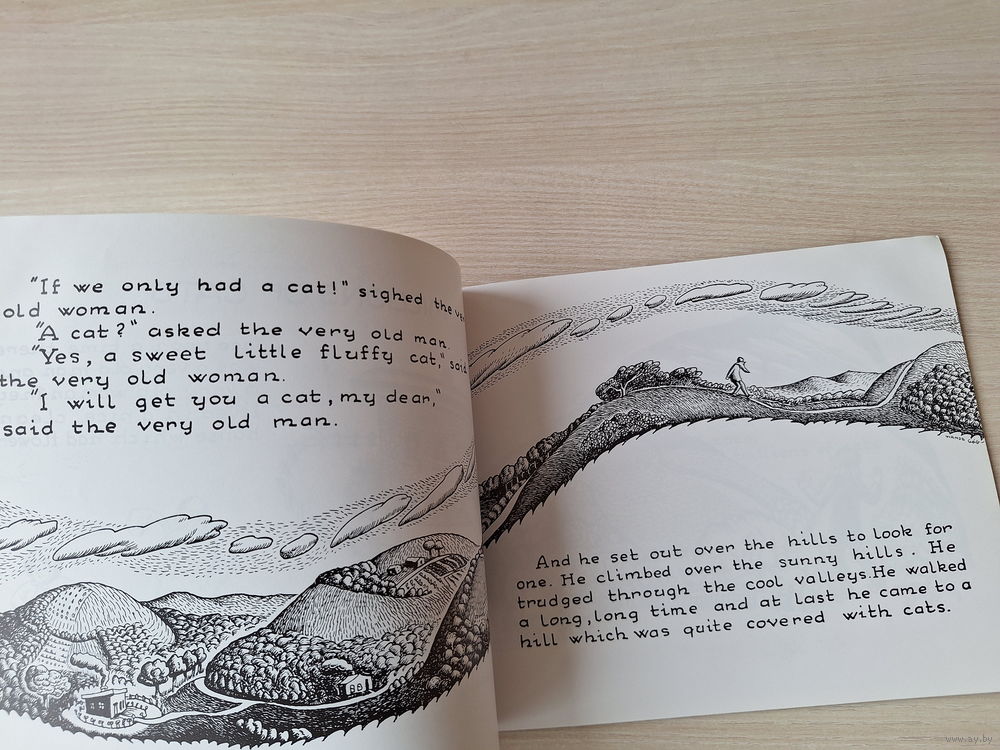 "If we only had a cat!" sighed the very
old woman.
"A cat?" asked the very old man.
"Yes, a sweet little fluffy cat," said
the very old woman.
"I will get you a cat, my dear,"
said the very old man.
And he set out over the hills to look for
one. He climbed over the sunny hills. He
trudged through the cool valleys. He walked
a long, long time and at last he came to a
hill which was quite covered with cats.
www.ay.by